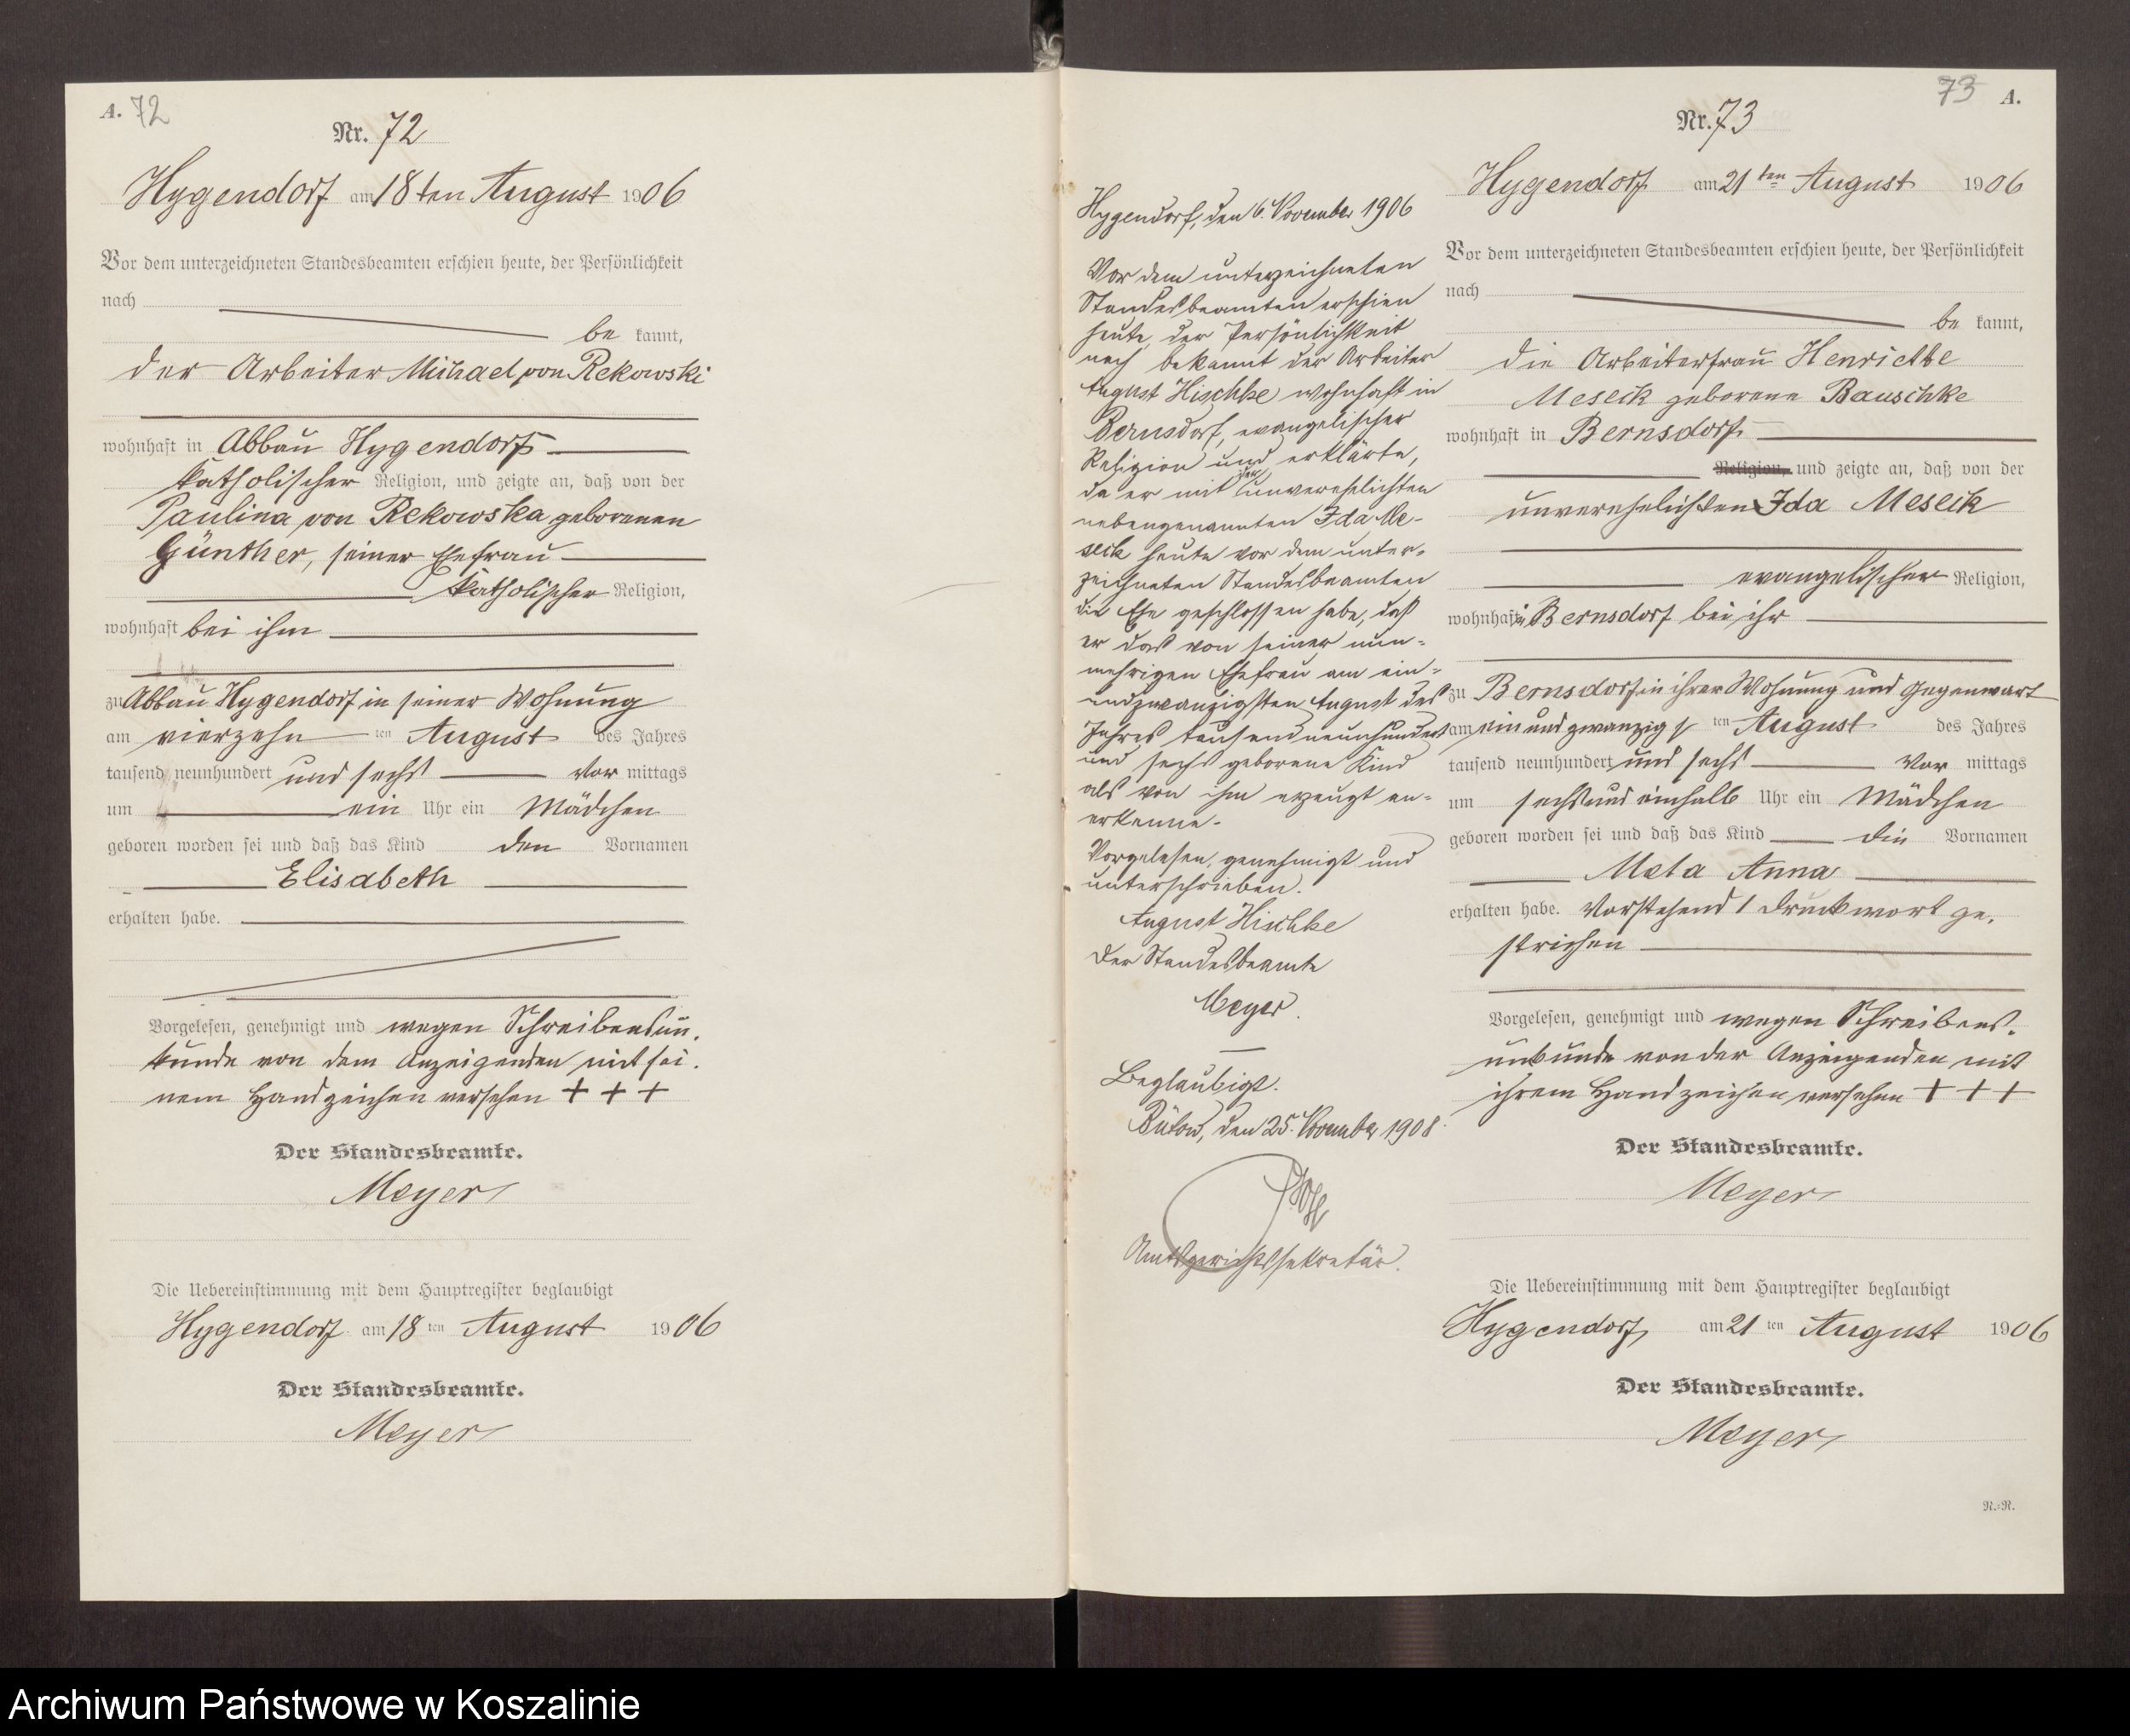 A. 72
Nr. 72
Hygendorf am 18ten August 1906
Vor dem unterzeichneten Standesbeamten erschien heute, der Persönlichkeit
nach
be kannt,
der Arbeiter Michael von Rekowski
wohnhaft in Abbau Hygendorf
katholischer Religion, und zeigte an, daß von der
Paulina von Rekowska geborenen
Günther, seiner Ehefrau
katholischer Religion,
wohnhaft bei ihm
zu Abbau Hygendorf in seiner Wohnung
am vierzehn ten August des Jahres
tausend neunhundert und sechs Vor mittags
um ein Uhr ein Mädchen
geboren worden sei und daß das Kind den Vornamen
Elisabeth
erhalten habe.
Vorgelesen, genehmigt und wegen Schreibensun-
kunde von dem Anzeigenden mit sei-
nem Handzeichen versehen + + +
Der Standesbeamte.
Meyer
Die Uebereinstimmung mit dem Hauptregister beglaubigt
Hygendorf am 18 ten August 1906
Der Standesbeamte.
Meyer
Hygendorf, den 6. November 1906
Vor dem unterzeichneten
Standesbeamten erschien
heute, der Persönlichkeit
nach bekannt der Arbeiter
August Hischke wohnhaft in
Bernsdorf, evangelischer
Religion und erklärte,
da er mit der unverehelichten
nebengenannten Ida Me-
seck heute vor dem unter-
zeichneten Standesbeamten
die Ehe geschlossen habe, daß
er das von seiner nun-
mehrigen Ehefrau am ein-
undzwanzigsten August des
Jahres tausendneunhundert
und sechs geborene Kind
als von ihm erzeugt an-
erkenne.
Vorgelesen, genehmigt und
unterschrieben.
August Hischke
Der Standesbeamte
Meyer.
Beglaubigt.
Bütow, den 25. November 1908.
Amtsgerichtssekretär.
73 A.
Nr. 73
Hygendorf am 21 ten August 1906
Vor dem unterzeichneten Standesbeamten erschien heute, der Persönlichkeit
nach
be kannt,
die Arbeiterfrau Henriette
Meseck geborene Bauschke
wohnhaft in Bernsdorf
Religion, und zeigte an, daß von der
unverehelichten Ida Meseck
evangelischer Religion,
wohnhaft in Bernsdorf bei ihr
zu Bernsdorf in ihrer Wohnung und Gegenwart
am ein und zwanzigs ten August des Jahres
tausend neunhundert und sechs Vor mittags
um sechs und einhalb Uhr ein Mädchen
geboren worden sei und daß das Kind die Vornamen
Meta Anna
erhalten habe. Vorstehend 1 Druckwort ge-
strichen
Vorgelesen, genehmigt und wegen Schreibens-
unkunde von der Anzeigenden mit
ihrem Handzeichen versehen + + +
Der Standesbeamte.
Meyer
Die Uebereinstimmung mit dem Hauptregister beglaubigt
Hygendorf, am 21 ten August 1906
Der Standesbeamte.
Meyer
N.=R.
Archiwum Państwowe w Koszalinie